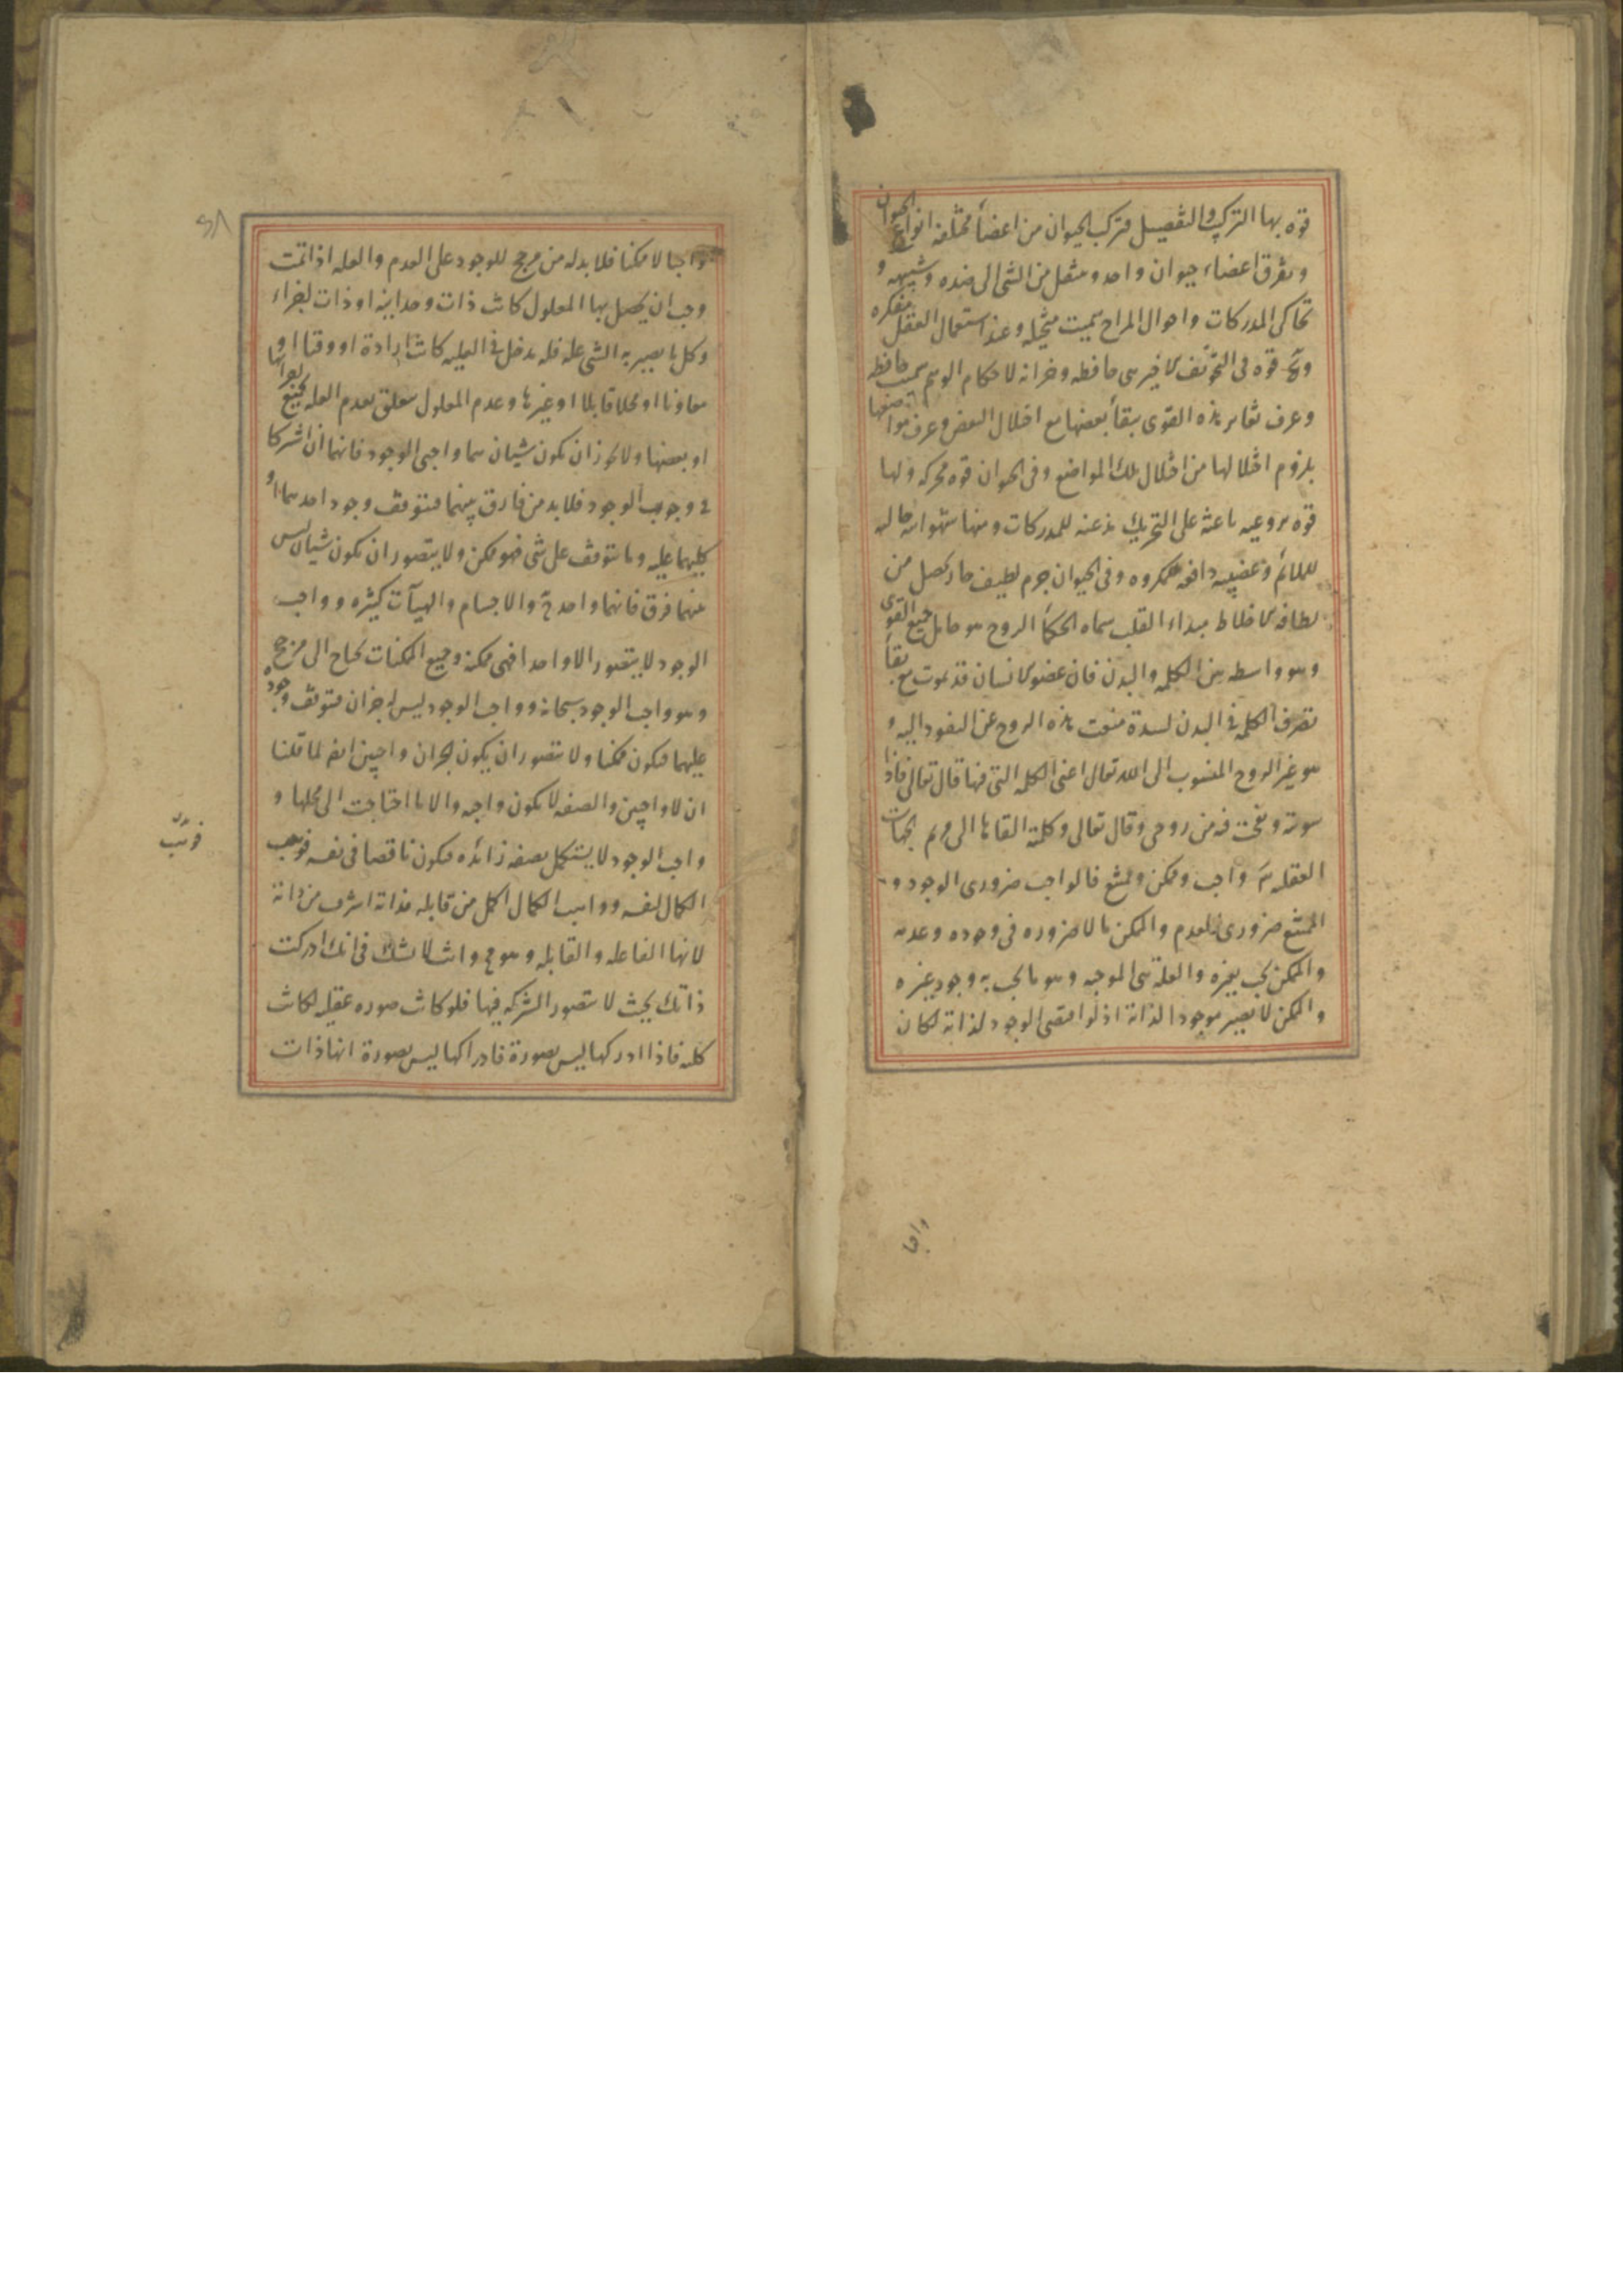 قوه بها التركيب والتفصيل فتركب الحيوان من اعضاء مختلفه انواع الحيوان
وتفرق اعضاء حيوان واحد وتنتقل من الشى الى ضده وشبيهه و
تحاكى المدركات واحوال المزاج سميت متخيله وعند استعمال العقل مفكره
قوه فى التجويف الاخير هى حافظه وخزانه لاحكام الوهم سميت حافظه
وعرف تغاير هذه القوى ببقاء بعضها مع اختلال البعض وعرف مواضعها
بلزوم اختلالها من اختلال تلك المواضع وفى الحيوان قوه محركه ولها
قوه نزوعيه باعثه على التحريك مذعنه للمدركات ومنها شهوانيه جالبه
للملائم وغضبيه دافعه للمكروه وفى الحيوان جرم لطيف حار يحصل من
لطافه الاخلاط مبداءه القلب سماه الحكماء الروح هو حامل جميع القوى
وهو واسطه بين الكلمه والبدن فان عضو الانسان قد يموت مع بقاء
تصرف الكلمه فى البدن لسدة منعت هذه الروح عن النفود اليه و
هو غير الروح المنسوب الى الله تعالى اعنى الكلمه التى فيها قال تعالى فاذا
سويته ونفخت فيه من روحى وقال تعالى وكلمته القاها الى مريم الجهات
العقليه واجب وممكن وممتنع فالواجب ضرورى الوجود و
الممتنع ضرورى العدم والممكن ما لا ضروره فى وجوده وعدمه
والممكن يجب بغيره والعلة هى الموجبه وهو ما يجب به وجود غيره
والممكن لا يصير موجودا لذاته اذ لو اقتضى الوجود لذاته لكان
واجبا
واجبا لا ممكنا فلا بد له من مرجح للوجود على العدم والعله اذا تمت
وجب ان يحصل بها المعلول كانت ذات وحدانيه او ذات اجزاء
وكل ما يصير به الشى علة فله مدخل فى العليه كانت ارادة او وقتا او
معاونا او محلا قابلا او غيرها وعدم المعلول يتعلق بعدم العله بجميع اجزائها
او بعضها ولا يجوز ان يكون شيئان هما واجبى الوجود فانهما ان اشتركا
فى وجوب الوجود فلا بد من فارق بينهما فتتوقف وجود احدهما او
كليهما عليه وما يتوقف على شى فهو ممكن ولا يتصور ان يكون شيئان ليس
بينهما فرق فانهما واحد والاجسام والهيآت كثيره وواجب
الوجود لا يتصور الا واحدا فهى ممكنه وجميع الممكنات تحتاج الى مرجح
وهو واجب الوجود سبحانه وواجب الوجود ليس له جزان فتوقف وجوده
عليهما فيكون ممكنا ولا يتصور ان يكون الجزان واجبين ايضا لما قلنا
ان لا واجبين والصفه لا تكون واجبه والا ما احتاجت الى محلها و
واجب الوجود لا يستكمل بصفه زائده فيكون ناقصا فى نفسه فوجب
الكمال لنفسه وواهب الكمال اكمل من قابله فذاته اشرف من ذاته
لانها الفاعله والقابله وهو مح وانت لا تشك فى انك ادركت
ذاتك بحيث لا يتصور الشركه فيها فلو كانت صوره عقليه لكانت
كليه فاذا ادركها ليس بصورة فادراكها ليس بصورة انها ذات